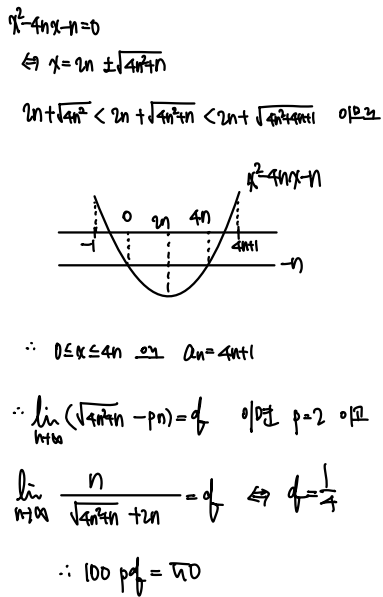 x²-4nx-n=0
⇔ x=2n ±√(4n²+n)
2n+√(4n²) < 2n+√(4n²+n) < 2n+√(4n²+4n+1) 이므로
x²-4nx-n
0 2n 4n
-1 4n+1
-n
∴ 0≤x≤4n only aₙ=4n+1
∴ lim n→∞ (√(4n²+n) -pn)=q 이므로 p=2 이고
lim n→∞ n/(√(4n²+n) +2n) =q ⇔ q=1/4
∴ 100 pq = 50